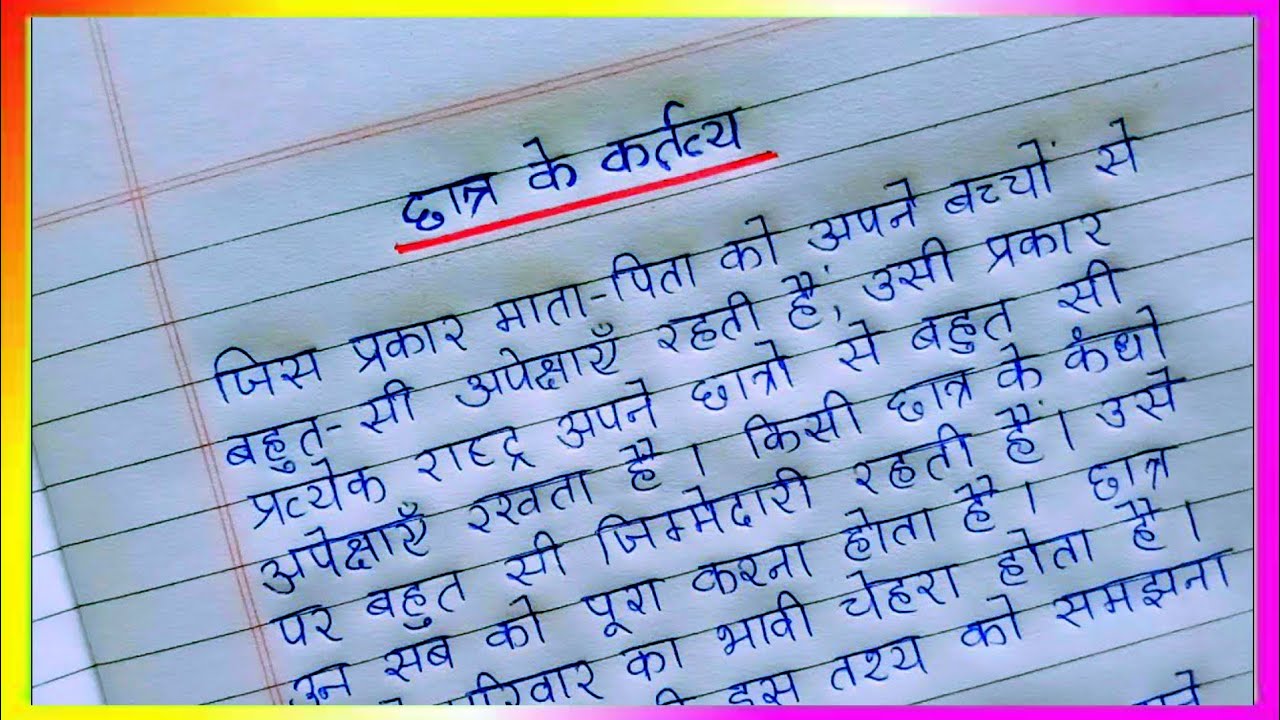 छात्र के कर्तव्य
जिस प्रकार माता-पिता को अपने बच्चों से
बहुत-सी अपेक्षाएँ रहती हैं, उसी प्रकार
प्रत्येक राष्ट्र अपने छात्रो से बहुत सी
अपेक्षाएँ रखता है । किसी छात्र के कंधो
पर बहुत सी जिम्मेदारी रहती हैं । उसे
उन सब को पूरा करना होता है । छात्र
का भावी चेहरा होता है ।
इस तथ्य को समझना